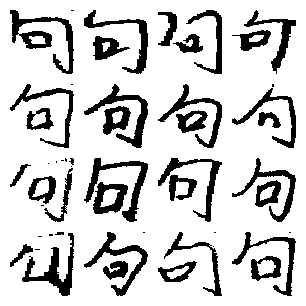 句句句句
句句句句
句句句句
句句句句